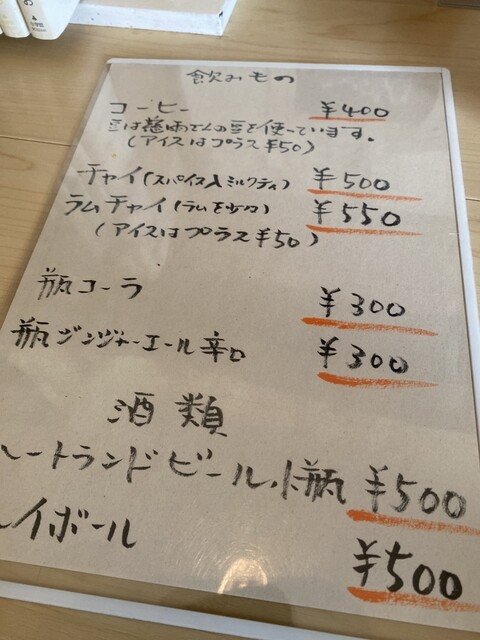 飲みもの
コーヒー ¥400
豆は さんの豆を使っています。
(アイスはプラス¥50)
チャイ(スパイス入ミルクティ) ¥500
ラムチャイ(ラムを少々) ¥550
(アイスはプラス¥50)
瓶コーラ ¥300
瓶ジンジャーエール辛口 ¥300
酒類
ートランドビール小瓶 ¥500
イボール ¥500